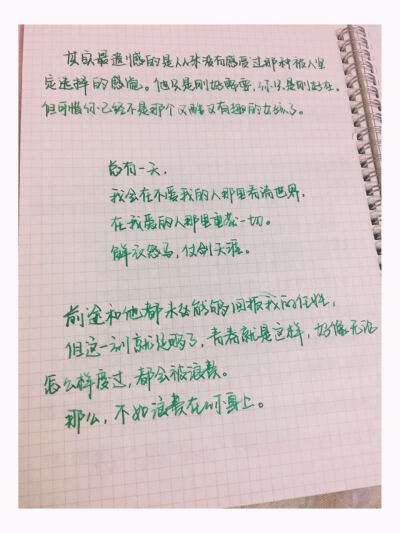 其实最遗憾的是从来没有感受过那种被人坚
定选择的感觉。他只是刚好需要,你只是刚好在。
但可惜你已经不是那个又酷又有趣的女孩了。
总有一天,
我会在不爱我的人那里看清世界,
在我爱的人那里重拾一切。
解衣怒马,仗剑天涯。
前途和他都未必能够回报我的任性,
但这一刻就足够了,青春就是这样,好像无论
怎么样度过,都会被浪费。
那么,不如浪费在你身上。